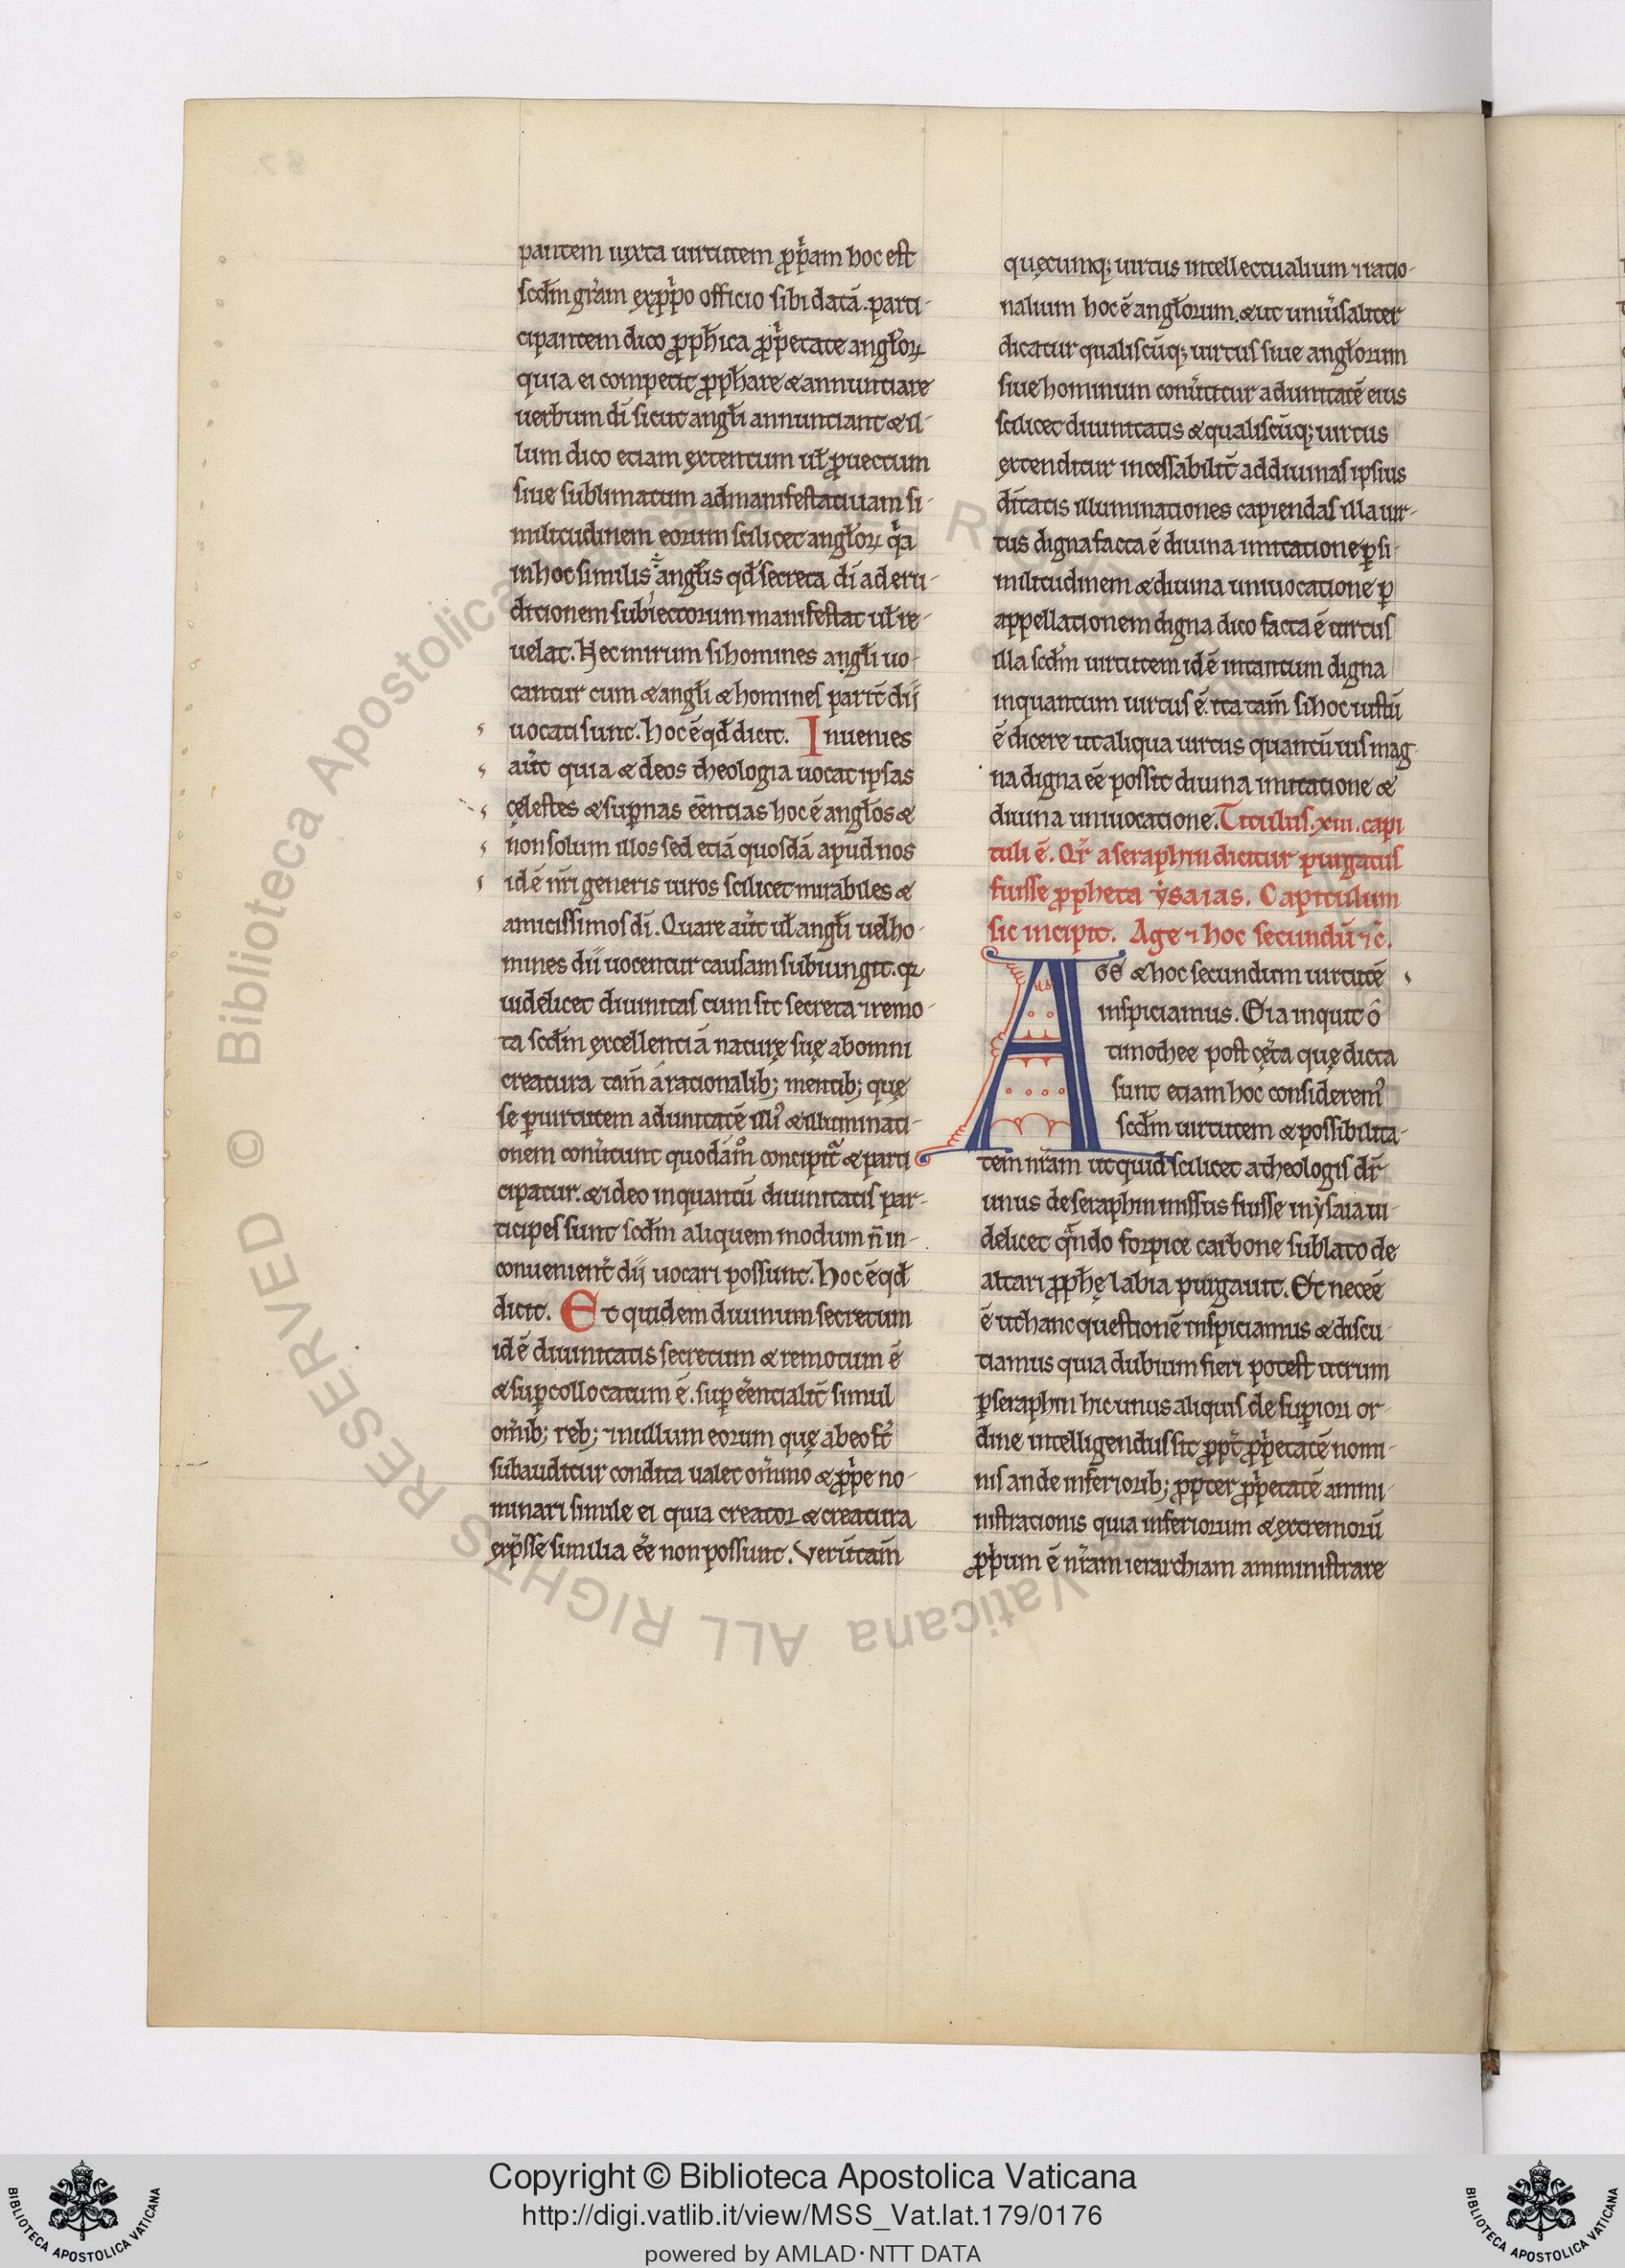 pantem iuxta uirtutem ꝓp̍am hoc est
scd̄m gr̄am ex ꝓp̍o officio sibi datā. parti-
cipantem dico ꝓph̄ica ꝓp̍etate angl̄oꝝ
quia ei competit ꝓph̄are & annunciare
uerbum dī sicut angl̄i annunciant & il-
lum dico etiam extentum ul̄ ꝓuectum
siue sublimatum ad manifestatiuam si-
militudinem eorum scilicet angl̄oꝝ q̍a
in hoc similis ÷ angl̄is qd̄ secreta dī ad eru-
ditionem subiectorum manifestat ul̄ re-
uelat. Nec mirum si homines angl̄i uo-
cantur cum & angl̄i & homines parit̄ dij
uocati sunt. hoc ē qd̄ dicit. Inuenies
aūt quia & deos theologia uocat ipsas
cęlestes & suꝑnas eēntias hoc ē angl̄os &
non solum illos sed etiā quosdā apud nos
id ē nr̄i generis uiros scilicet mirabiles &
amicissimos dī. Quare aūt ul̄ angl̄i uel ho-
mines dii uocentur causam subiungit. qꝛ
uidelicet diuinitas cum sit secreta ⁊ remo-
ta scd̄m excellentiā naturę suę ab omni
creatura tam̄ a rationalib; mentib; quę
se ꝑ uirtutem ad unitatē illiꝰ & illuminati-
onem conūtunt quodām̊ concipit᷑ & parti
cipatur. & ideo inquantū diuinitatis par-
ticipes sunt scd̄m aliquem modum n̄ in-
conuenient̄ dij uocari possunt. hoc ē qd̄
dicit. Et quidem diuinum secretum
id ē diuinitatis secretum & remotum ē
& suꝑcollocatum ē. suꝑeēntialit̄ simul
om̄ib; reb; ⁊ nullum eorum quę ab eo st̄
subauditur condita ualet om̄ino & ꝓp̍e no-
minari simile ei quia creator & creatura
exp̄sse similia eē non possunt. Verūtam̄
quęcumq; uirtus intellectualium ⁊ ratio-
nalium hoc ē angl̄orum. & ut uniūsaliter
dicatur qualiscūq; uirtus siue angl̄orum
siue hominum conūtitur ad unitatē eius
scilicet diuinitatis & qualiscūq; uirtus
extenditur incessabilit̄ ad diuinas ipsius
dītatis illuminationes capiendas illa uir-
tus digna facta ē diuina imitatione ꝑ si-
militudinem & diuina uniuocatione ꝑ
appellationem digna dico facta ē uirtus
illa scd̄m uirtutem id ē intantum digna
inquantum uirtus ē. ita tam̄ si hoc iustū
ē dicere ut aliqua uirtus quantūuis mag-
na digna eē possit diuina imitatione &
diuina uniuocatione. Titulus. xiii. capi
tuli ē. Qr̄ a seraphin dicitur purgatus
fuisse ꝓpheta ẏsaias. Capitulum
sic incipit. Age ⁊ hoc secundū ⁊c̄.
AGE & hoc secundum uirtutē
inspiciamus. Eia inquit ô
timothee post cęt̄a quę dicta
sunt etiam hoc consideremꝰ
scd̄m uirtutem & possibilita-
tem nr̄am ut quid scilicet a theologis dr̄
unus de seraphin missus fuisse in ẏsaia ui-
delicet qn̄do forpice carbone sublato de
altari ꝓph̄ę labia purgauit. Et necēe
ē ut hanc questionē inspiciamus & discu-
tiamus quia dubium fieri potest utrum
ꝑ seraphin hic unus aliquis de suꝑiori or-
dine intelligendus sit ꝓpt̄ ꝓp̍etatē nomi-
nis an de inferiorib; ꝓpter ꝓp̍etatē ammi-
nistrationis quia inferiorum & extremorū
ꝓp̍um ē nr̄am ierarchiam amministrare
© Biblioteca Apostolica Vaticana ALL RIGHTS RESERVED
Copyright © Biblioteca Apostolica Vaticana
http://digi.vatlib.it/view/MSS_Vat.lat.179/0176
powered by AMLAD·NTT DATA
BIBLIOTECA APOSTOLICA VATICANA
BIBLIOTECA APOSTOLICA VATICANA